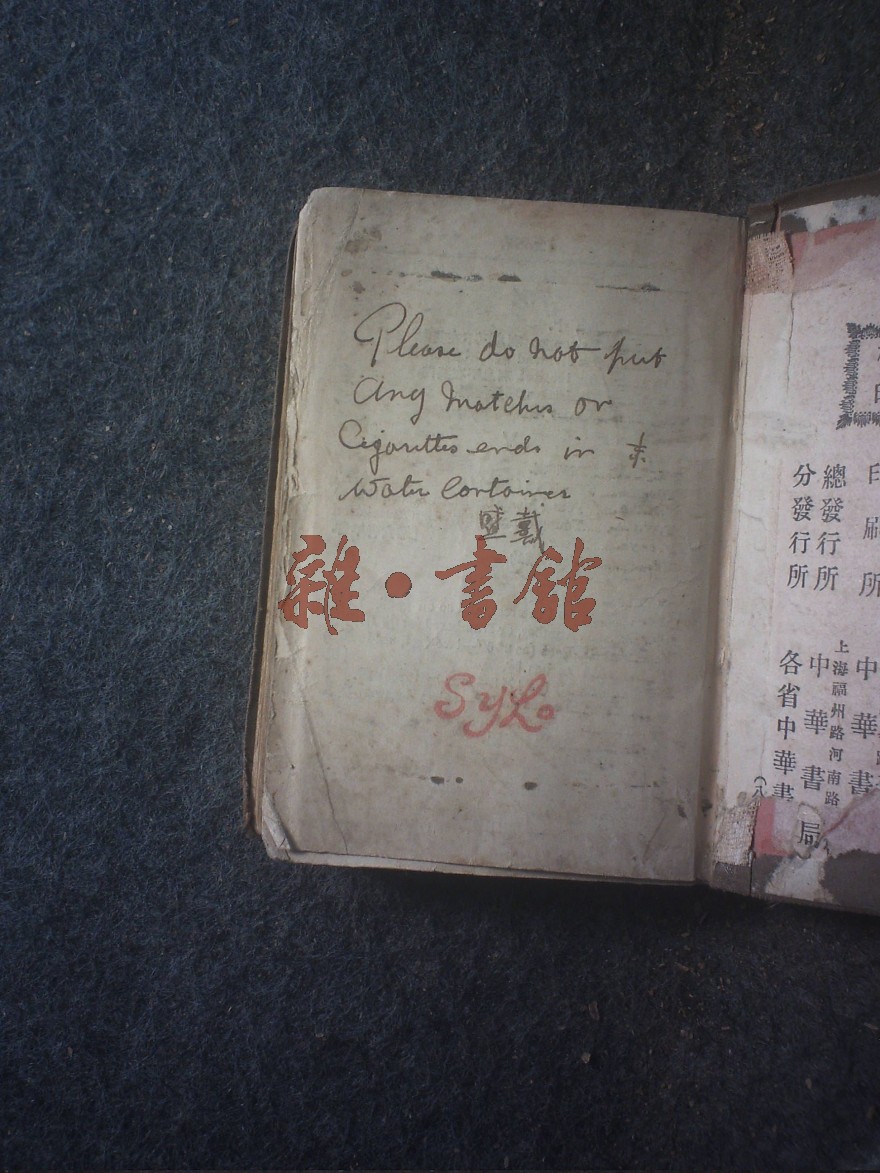 Please do not put
Any Matches or
Cigarettes ends in
Water Container
戴
雜·書館
SYL.
印刷所
總發行所
分發行所
中華書
上海福州路河南路
中華書
各省中華書局